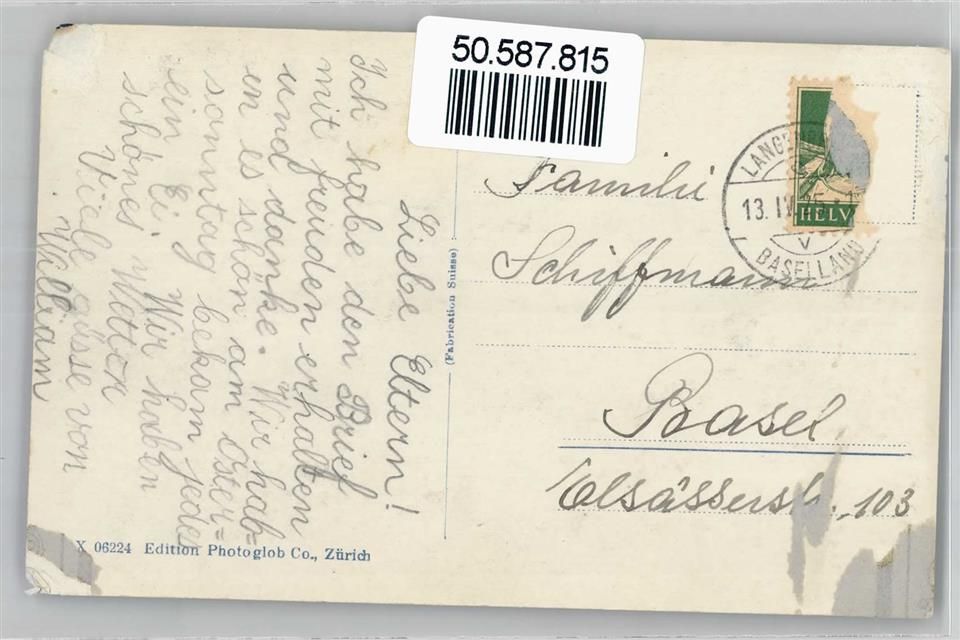 50.587.815
Liebe Eltern!
Ich habe den Brief
mit freuden erhalten
und danke. Wir hab-
en es schön am Oster-
sonntag bekam jedes
ein Ei, Wir haben
schönes Wetter
Viele güsse von
William
(Fabrication Suisse)
X 06224 Edition Photoglob Co., Zürich
HELV
13. IV
BASELLAND
Familie
Schiffmann
Basel
Elsässerstr. 103